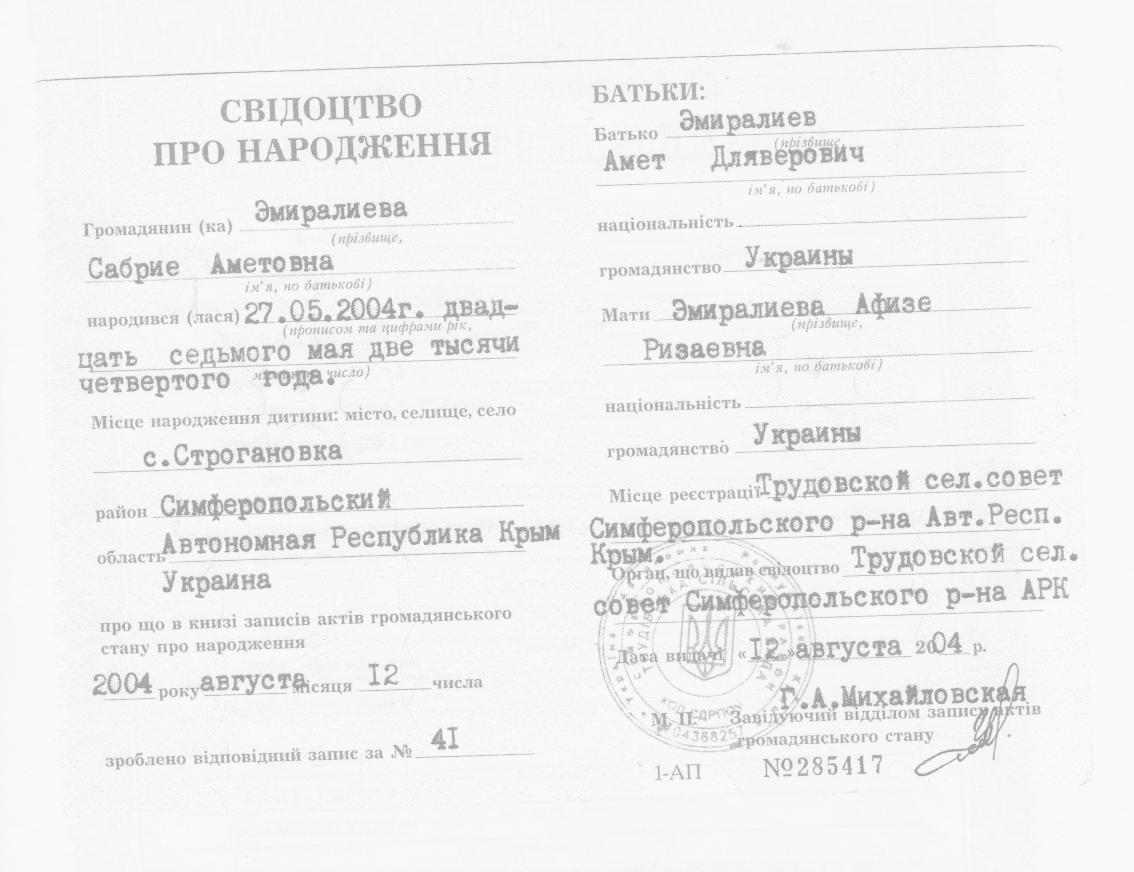 СВІДОЦТВО
ПРО НАРОДЖЕННЯ
Громадянин (ка) Эмиралиева
(прізвище,
Сабрие Аметовна
ім'я, по батькові)
народився (лася) 27.05.2004г. двад-
(прописом та цифрами рік,
цать седьмого мая две тысячи
четвертого года.
число)
Місце народження дитини: місто, селище, село
с.Строгановка
район Симферопольский
область Автономная Республика Крым
Украина
про що в книзі записів актів громадянського
стану про народження
2004 року августа місяця I2 числа
зроблено відповідний запис за № 4I
БАТЬКИ:
Батько Эмиралиев
(прізвище,
Амет Дляверович
ім'я, по батькові)
національність
громадянство Украины
Мати Эмиралиева Афизе
(прізвище,
Ризаевна
ім'я, по батькові)
національність
громадянство Украины
Місце реєстрації Трудовской сел.совет
Симферопольского р-на Авт.Респ.
Крым.
Орган, що видав свідоцтво Трудовской сел.
совет Симферопольского р-на АРК
Дата видачі «I2» августа 2004 р.
Г.А.Михайловская
М. П. Завідуючий відділом запису актів
громадянського стану
1-АП №285417
КОД ЄДРПОУ
04368257